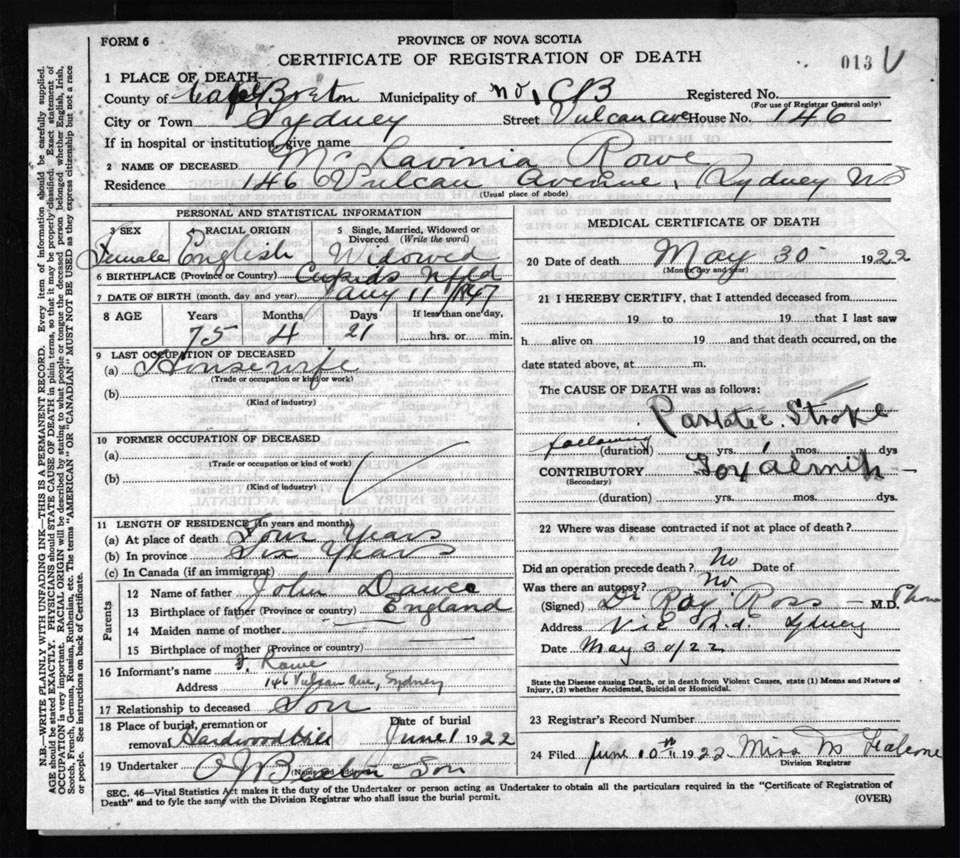 FORM 6
PROVINCE OF NOVA SCOTIA
CERTIFICATE OF REGISTRATION OF DEATH
013 V
1 PLACE OF DEATH—
County of Cape Breton Municipality of No, CB Registered No.
(For use of Registrar General only)
City or Town Sydney Street Vulcan Ave House No. 146
If in hospital or institution, give name
2 NAME OF DECEASED Lavinia Rowe
Residence 146 Vulcan Avenue, Sydney NS
(Usual place of abode)
PERSONAL AND STATISTICAL INFORMATION
3 SEX 4 RACIAL ORIGIN 5 Single, Married, Widowed or Divorced (Write the word)
Female English Widowed
6 BIRTHPLACE (Province or Country) Cupids Nfld
7 DATE OF BIRTH (month, day and year) Jany 11 1847
8 AGE Years Months Days If less than one day,
75 4 21 hrs. or min.
9 LAST OCCUPATION OF DECEASED
(a) Housewife
(Trade or occupation or kind of work)
(b)
(Kind of industry)
10 FORMER OCCUPATION OF DECEASED
(a)
(Trade or occupation or kind of work)
(b)
(Kind of industry)
11 LENGTH OF RESIDENCE (In years and months)
(a) At place of death Four Years
(b) In province Six Years
(c) In Canada (if an immigrant)
Parents
12 Name of father John Dawe
13 Birthplace of father (Province or country) England
14 Maiden name of mother
15 Birthplace of mother (Province or country)
16 Informant's name J. Rowe
Address 146 Vulcan Ave, Sydney
17 Relationship to deceased Son
18 Place of burial, cremation or removal Hardwood Hill Date of burial June 1 1922
19 Undertaker Son
(Name and address)
MEDICAL CERTIFICATE OF DEATH
20 Date of death May 30 1922
(Month day and year)
21 I HEREBY CERTIFY, that I attended deceased from
19 to 19 that I last saw
h alive on 19 and that death occurred, on the
date stated above, at m.
The CAUSE OF DEATH was as follows:
Stroke
following (duration) yrs. mos. dys
CONTRIBUTORY
(Secondary)
(duration) yrs. mos. dys.
22 Where was disease contracted if not at place of death?
Did an operation precede death? No Date of
Was there an autopsy? No.
(Signed) Dr Roy Ross — M.D.
Address Vic Rd. Sydney
Date May 30/22
State the Disease causing Death, or in death from Violent Causes, state (1) Means and Nature of Injury, (2) whether Accidental, Suicidal or Homicidal.
23 Registrar's Record Number
24 Filed June 10th 1922 Miss M
Division Registrar
SEC. 46—Vital Statistics Act makes it the duty of the Undertaker or person acting as Undertaker to obtain all the particulars required in the "Certificate of Registration of
Death" and to fyle the same with the Division Registrar who shall issue the burial permit. (OVER)
N.B.—WRITE PLAINLY WITH UNFADING INK—THIS IS A PERMANENT RECORD. Every item of information should be carefully supplied.
AGE should be stated EXACTLY. PHYSICIANS should STATE CAUSE OF DEATH in plain terms, so that it may be properly classified. Exact statement of
OCCUPATION is very important. RACIAL ORIGIN will be described by stating to what people or tongue the deceased person belonged whether English, Irish,
Scotch, French, German, Russian, Ruthenian, etc. The terms "AMERICAN" OR "CANADIAN" MUST NOT BE USED as they express citizenship but not a race
or people. See instructions on back of Certificate.